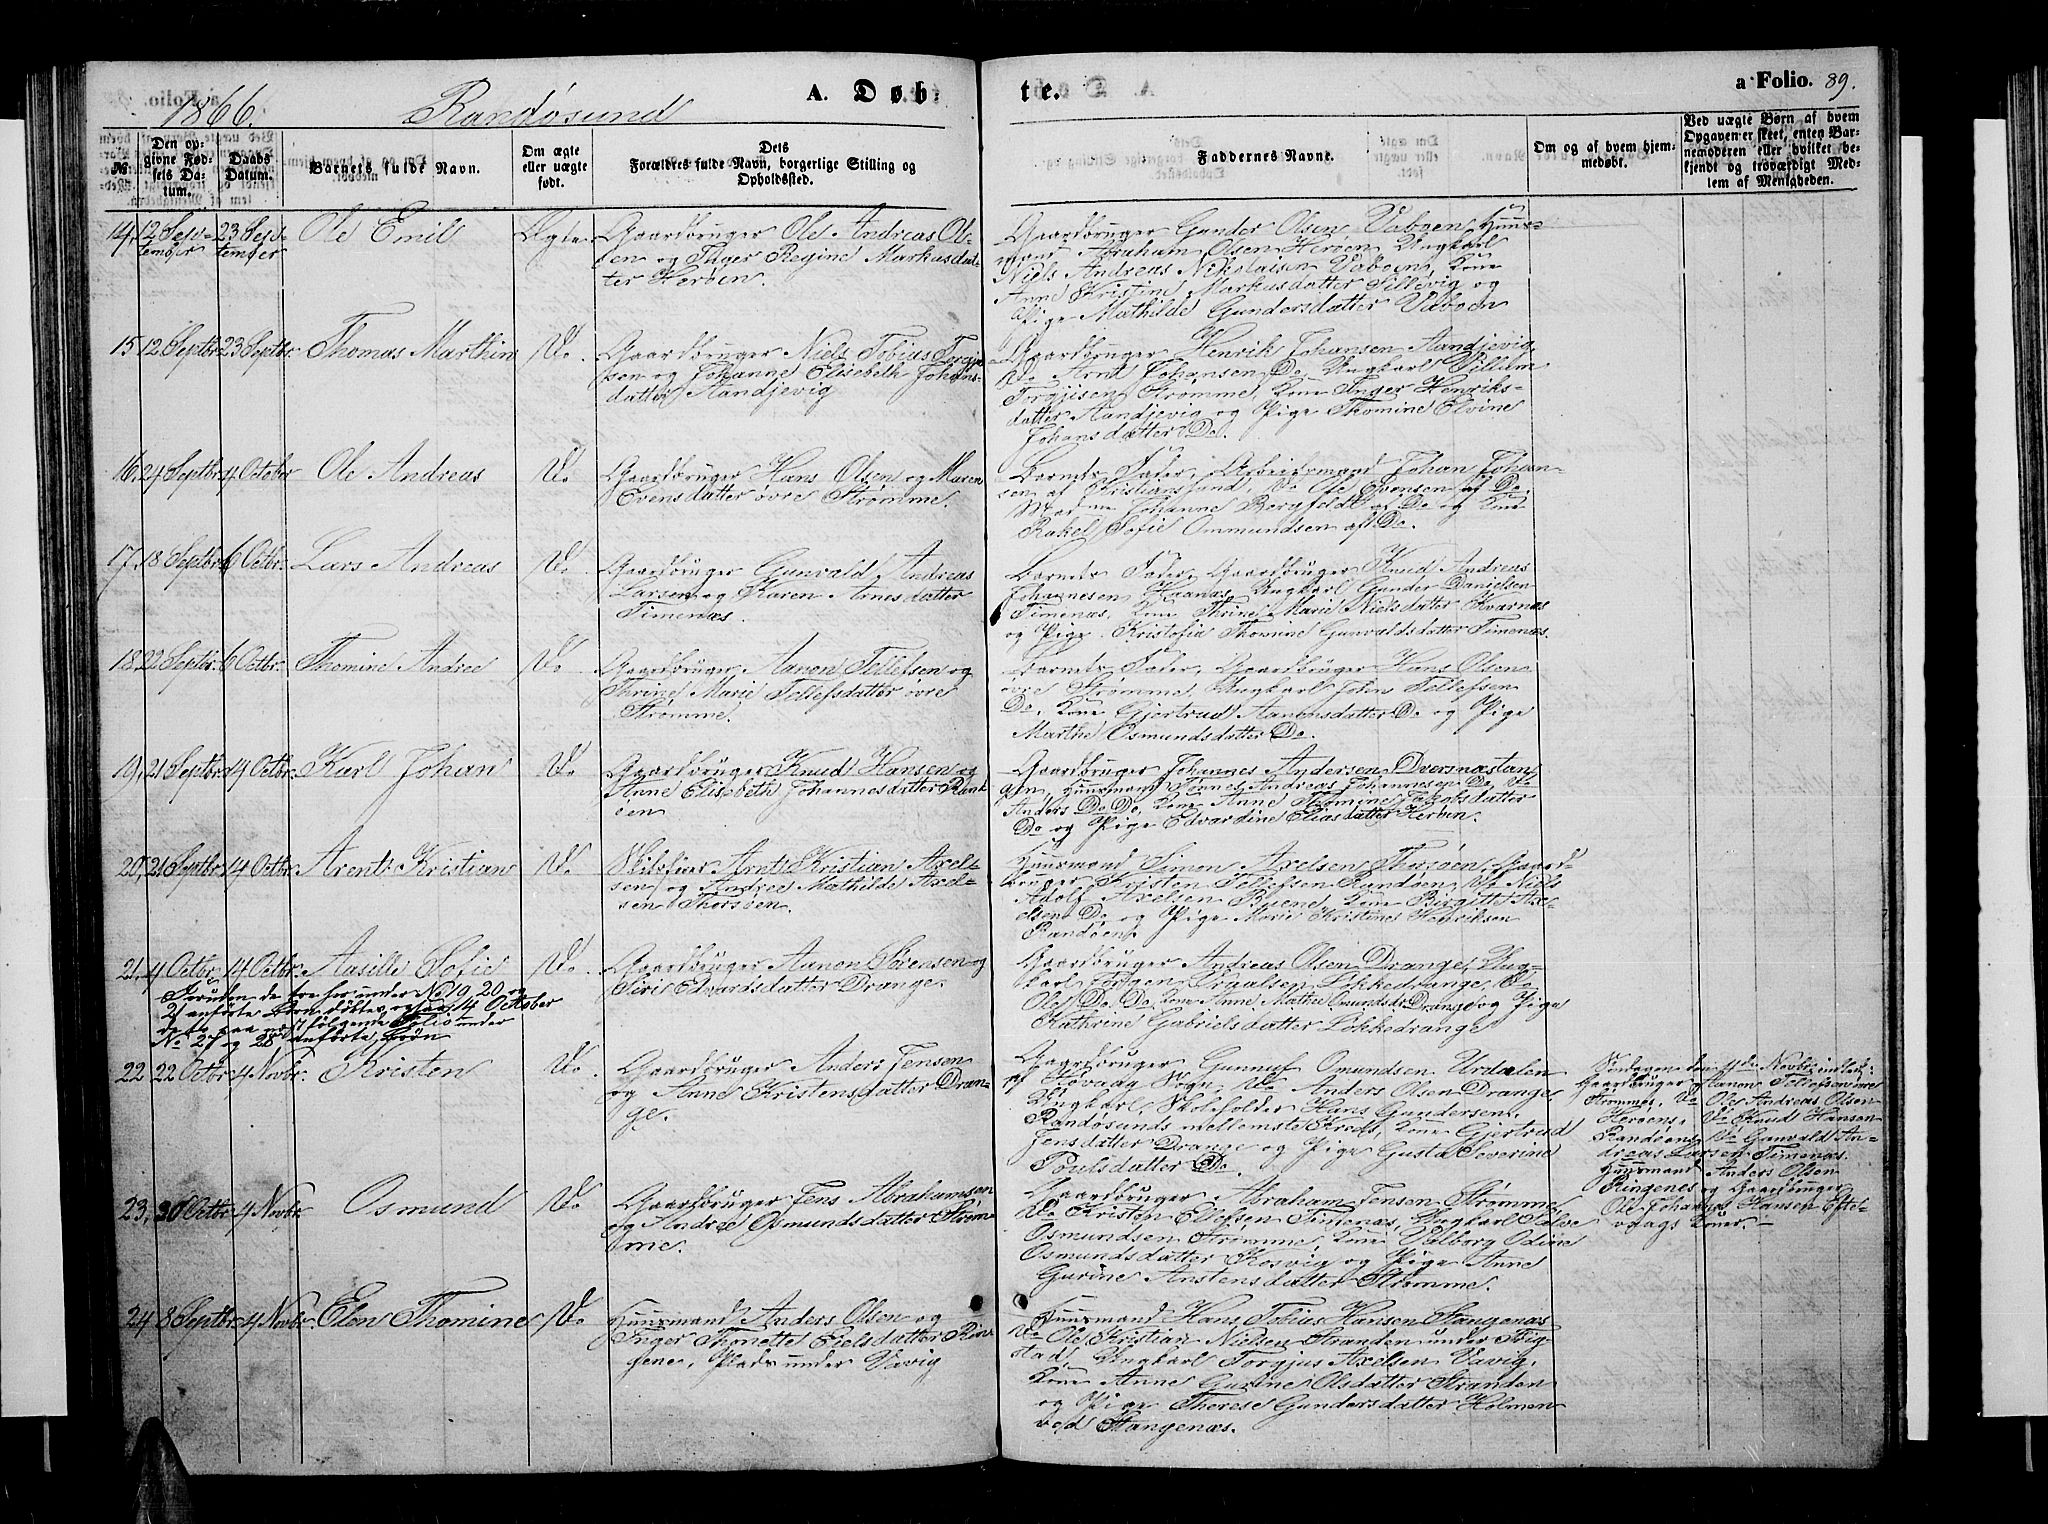 1866. Randøsund A. Døb-
te. a Folio. 89.
No.
Den op-
givne Fød-
sels Da-
tum.
Daabs
Datum.
Barnets fulde Navn.
Om ægte
eller uægte
født.
Dets
Forældres fulde Navn, borgerlige Stilling og
Opholdssted.
Faddernes Navne.
Om og af hvem hjem-
medøbt.
Ved uægte Børn af hvem
Opgaven er skeet, enten Bar-
nemoderen eller hvilket be-
kjendt og troværdigt Med-
lem af Menigheden.
14, 12 Sep- 23 Sep- Ole Emil Ægte
tember tember
Gaardbruger Ole Andreas Ol-
sen og Inger Regine Markusdat-
ter Herøen.
Gaardbruger Gunder Olsen Vaboen, Huus-
mand Abraham Olsen Herøen, Ungkarl
Niels Andreas Nikolaisen Vaboen, Kone
Anne Kristine Markusdatter Sillevig og
Pige Mathilde Gundersdatter Vaboen
15 12 Septbr. 23 Septbr. Thomas Marthin Do.
Gaardbruger Niels Tobias Torgju-
sen og Johanne Elisebeth Johans-
datter Aandjevig
Gaardbruger Henrik Johansen Aandjevig,
Do Arnt Johansen Do, Ungkarl Villum
Torgjusen Strømme, Kone Inger Henriks-
datter Aandjevig og Pige Thomine Elvine
Johansdatter Do.
16, 24 Septbr. 4 October Ole Andreas Do
Gaardbruger Hans Olsen og Maren
Evensdatter øvre Strømme.
Barnets Fader, Arbeidsmand Johan Johan-
sen af Kristianssand, Do Ole Svensen af Do,
Madme Johanne Bergfeldt af Do og Kone
Rakel Sofie Ommundsen af Do.
17, 18 Septbr. 6 Octbr. Lars Andreas Do
Gaardbruger Gunvald Andreas
Larsen og Karen Arnesdatter
Timenæs.
Barnets Fader, Gaardbruger Knud Andreas
Johannesen Haanæs, Ungkarl Gunder Danielsen
Timenæs, Kone Thrine Marie Nielsdatter Kvarnæs
og Pige Kristofia Thomine Gunvaldsdatter Timenæs.
18, 22 Septbr. 6 Octbr. Thomine Andree Do
Gaardbruger Aanon Tellefsen og
Thrine Marie Tellefsdatter øvre
Strømme.
Barnets Fader, Gaardbruger Hans Olsen
øvre Strømme, Ungkarl Johns Tellefsen
Do, Kone Gjertrud Aanensdatter Do og Pige
Marthe Osmundsdatter Do.
19, 21 Septbr. 14 Octbr. Karl Johan Do
Gaardbruger Knud Hansen og
Anne Elisebeth Johannesdatter Rand-
øen
Gaardbruger Johannes Andersen Dversnæstan-
gen, Huusmand Tønnes Andreas Johannesen Do, Do
Anders Do Do, Kone Anne Thomine Jakobsdatter
Do og Pige Edvardine Eliasdatter Herøen.
20, 21 Septbr. 14 Octbr. Arent Kristian Do
Skibsfører Arnt Kristian Axel-
sen og Andree Mathilde Axel-
sen Thersøen.
Huusmand Simon Axelsen Thersøen, Gaard-
bruger Kristen Tellefsen Randøen, Do Niels
Adolf Axelsen Kone Birgitte Axe-
lsen Do og Pige Marie Kristine Henriksen
Randøen.
21, 4 Octbr. 14 Octbr. Aasille Sofie Do
Gaardbruger Aanon Sørensen og
Siri Edvardsdatter Drange.
Gaardbruger Andreas Olsen Drange, Ung-
karl Jørgen Traalsen Løkkedrange, Do
Ole Do Do, Kone Anne Mathea Omundsdr Drange og Pige
Kathrine Gabrielsdatter Løkkedrange
Foruden de tre her under No 19, 20 og
21 anførte Børn døbtes ogsaa 14 October
de to paa næst følgende Folio under
No 27 og 28 anførte Børn
22 22 Octbr. 4 Novbr. Kristen Do.
Gaardbruger Anders Jensen
og Anne Kristensdatter Dran-
ge.
Gaardbruger Gunnuf Omundsen Urdalen
af Høvaag Sogn, Do Anders Olsen Drange
Ungkarl, Skoleholder Hans Gundersen,
Randøsunds mellemste Kreds, Kone Gjertrud
Jensdatter Drange og Pige Gusta Severine
Poulsdatter Do.
Søndagen den 11de Novbr. indled:
Gaardbruger Aanon Tellefsen øvre
Strømmes, Do Ole Andreas Olsen
Herøens, Do Knud Hansen
Randøens, Do Gunvald An-
dreas Larsen Timenæs,
Huusmand Anders Olsen
Ringenes og Gaardbruger
Ole Johannes Hansen Efte-
vaags Koner.
23, 30 Octbr. 4 Novbr. Osmund Do
Gaardbruger Jens Abrahamsen
og Andree Osmundsdatter Strøm-
me.
Gaardbruger Abraham Jensen Strømme,
Do Kristen Ellefsen Timenæs, Ungkarl Salve
Osmundsen Strømme, Kone Valborg Odine
Osmundsdatter Kosvig og Pige Anne
Gurine Anstensdatter Strømme.
24 8 Septbr. 4 Novbr. Elen Thomine Do
Huusmand Anders Olsen og
Inger Thomette Eielsdatter Rin-
gene, Plads under Vavig
Huusmand Hans Tobias Hansen Stangenæs
Do Ole Kristian Nilsen Stranden under Frig-
stad, Ungkarl Torgjus Axelsen Vavig,
Kone Anne Gurine Olsdatter Stranden
og Pige Therese Gundersdatter Holmen
ved Stangenæs.